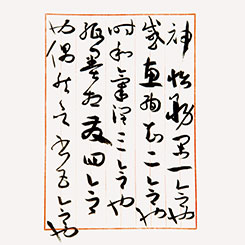 神怡務閑一合也
感惠徇知二合也
時和氣潤三合也
紙墨相發四合
也偶然欲書五合也